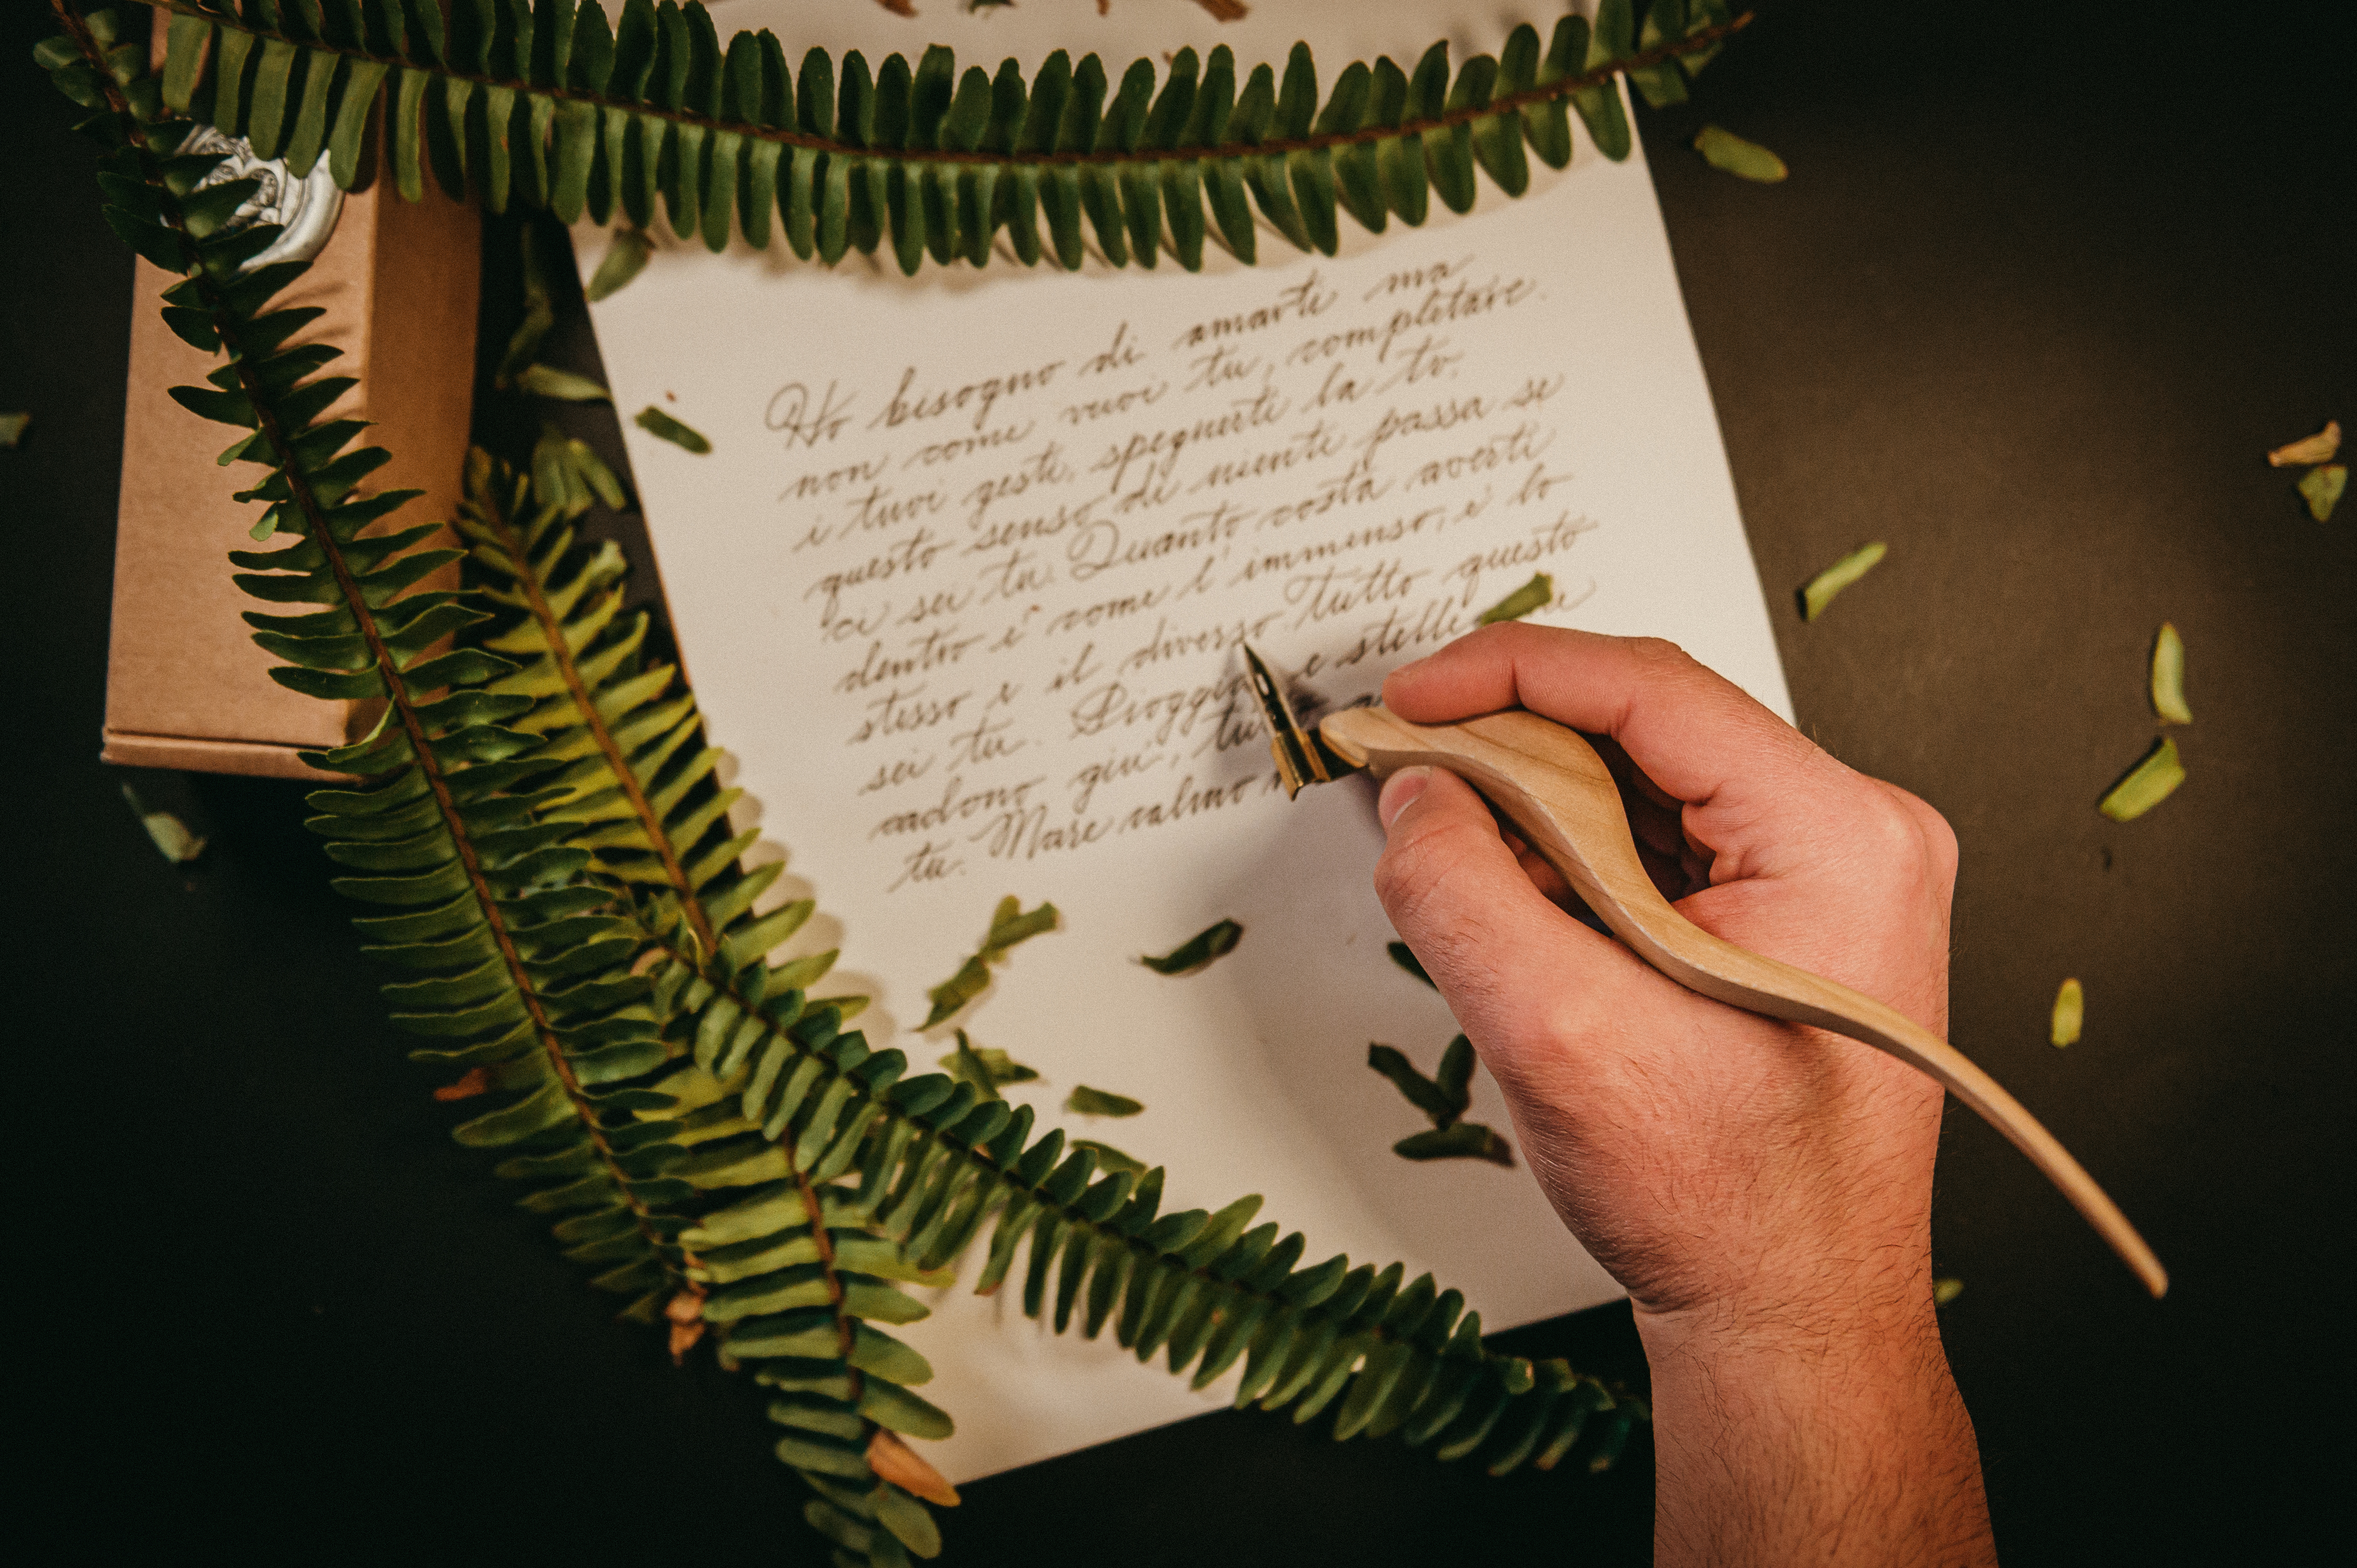 Ho bisogno di amarti ma
non come vuoi tu, completare
i tuoi gesti, spegnerti la tv.
questo senso di niente passa se
ci sei tu. Quanto costa averti
dentro è come l'immenso, è lo
stesso e il diverso Tutto questo
sei tu. Pioggia e stelle
cadono giù,
tu. Mare calmo